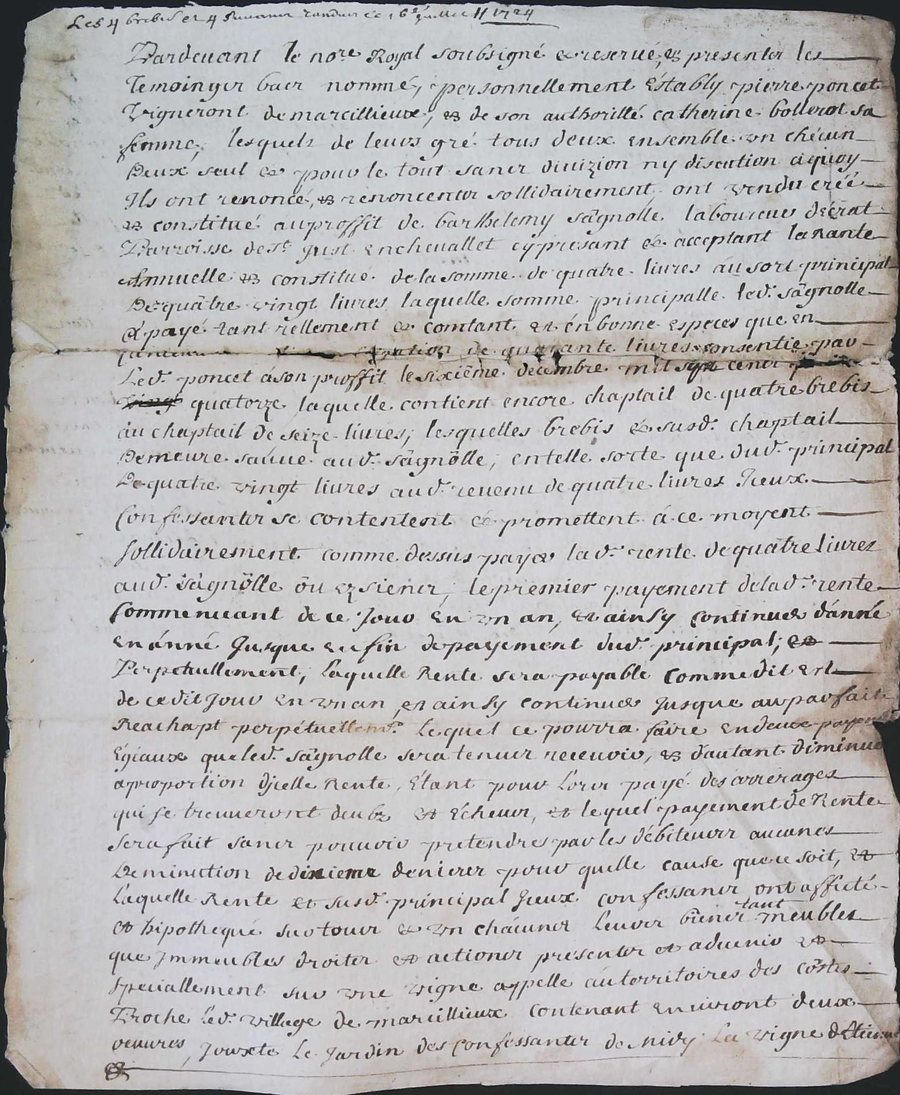 Les 4 brebis et 4 rendus ce 16e juillet 1724
Pardevant le nore Royal soubsigné & reservé, & presenter les
Temoinger baer nommé, personnellement Establj pierre poncet
Vigneront de marcillieux, & de son authorillé catherine bollerot sa
femme, lesquelz de leurs gré tous deux ensemble un chēcun
Deux seul & pour le tout sancr divizion ny discution a quoy
Ils ont renoncé, & renoncentor sollidairement ont vendu créé
& constitué auproffit de barthelemy sagnolle laboureur décrat
Parroisse de St Just Enchevallet cy present & acceptant la Rante
Annuelle & constitué de la somme de quatre livres au sort principal
De quatre vingt livres laquelle somme principalle led. sagnolle
à payé tant rellement & comtant et en bonne especes que en
de quarante livres consentie par
Led. poncet à son proffit le sixiême decembre mil sept cencr
quatorze laquelle contient encore chaptail de quatre brebis
au chaptail de seize livres; lesquelles brebis & susd. chaptail
Demeure sauve aud. sagnolle, en telle sorte que dud. principal
De quatre vingt livres aud. revenu de quatre livres Jceux
Confessantor se contentent & promettent à ce moyent
Sollidairement comme dessus payer lad. rente de quatre livres
aud. sagnolle ou ez siencr, le premier payement de lad. rente
Commencant de ce Jour En un an, et ainsy continuer danné
en anné Jusque en fin de payement dud. principal, &
Perpetuellement, Laquelle Rente sera payable comme dit est
de cedit Jour en un an et ainsy continuer Jusque au parfait
Reachapt perpétuellemt. Lequel ce pourra faire en deux payem
Egiaux que led. sagnolle sera tenur recevoir, & dautant diminuer
a proportion djcelle Rente, Etant pour Lorr payé des arrerages
qui se treuveront deubz et Echeur, et lequel payement de Rente
sera fait sancr pouvoir pretendres par les débiteurr aucunes
Deminution de dixieme denierer pour quelle cause que ce soit, &
Laquelle Rente et susd. principal Jceux confessancr ont affecté
et hipothequé sur tour & un châcuner leurr biencr tant meubles
que Jmmeubles droiter & actioner presenter et advenir &
Speciallement sur une vigne appelle au torritoires des côstes
Proche led. village de marcillieux contenant Environt deux
oeuvres, Jouxte Le Jardin des confessanter de Midy; La vigne dEtienne
&